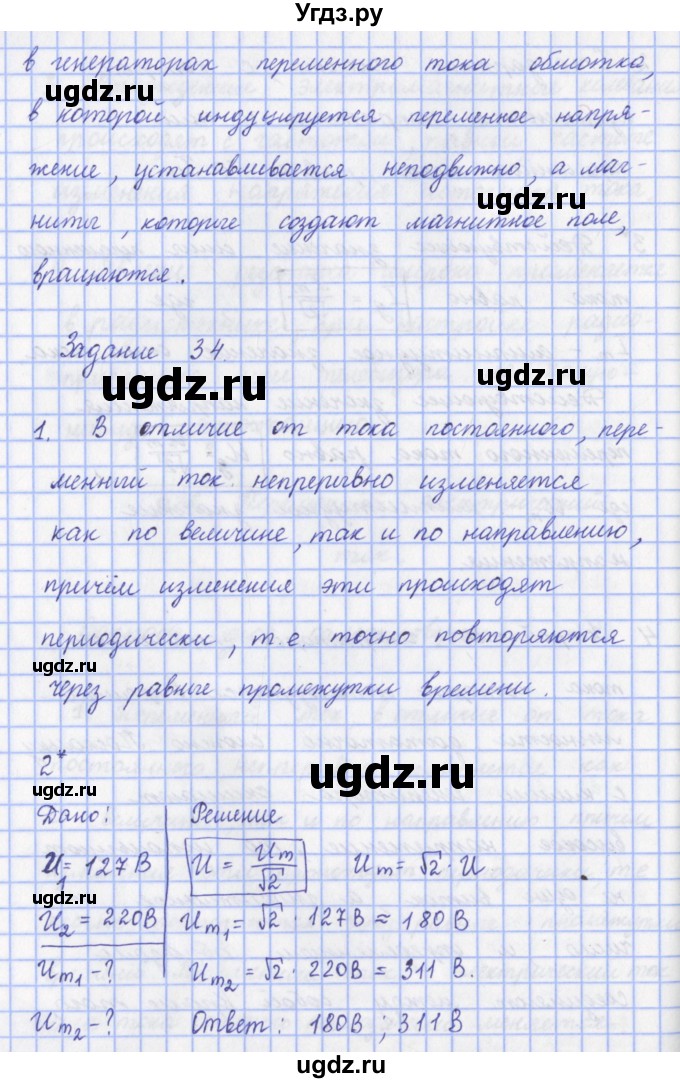 Угдз.ру
в генераторах переменного тока обмотка,
ugdz.ru
ugdz.ru
в которой индуцируется переменное напря-
жение, устанавливается неподвижно, а маг-
ugdz.ru
ниты, которые создают магнитное поле,
вращаются.
Задание 34.
ugdz.ru
ugdz.ru
1. В отличие от тока постоянного, пере-
менный ток непрерывно изменяется
как по величине, так и по направлению,
причём изменения эти происходят
периодически, т.е. точно повторяются
ugdz.ru
через равные промежутки времени.
2*
ugdz.ru
Дано: Решение
U₁ = 127 В U = Um/√2 Um = √2 · U
ugdz.ru
U₂ = 220В Um₁ = √2 · 127 В ≈ 180 В
Um₁ - ? Um₂ = √2 · 220 В = 311 В.
Um₂ - ? Ответ: 180 В ; 311 В
ugdz.ru